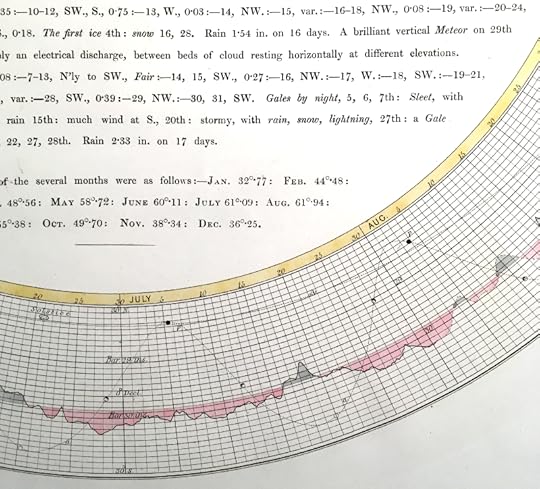 35:—10-12, SW., S., 0·75:—13, W., 0·03:—14, NW.:—15, var.:—16-18, NW., 0·08:—19, var.:—20-24,
0·18. The first ice 4th: snow 16, 28. Rain 1·54 in. on 16 days. A brilliant vertical Meteor on 29th
ly an electrical discharge, between beds of cloud resting horizontally at different elevations.
08:—7-13, N'ly to SW., Fair:—14, 15, SW., 0·27:—16, NW.:—17, W.:—18, SW.:—19-21,
, var.:—28, SW., 0·39:—29, NW.:—30, 31, SW. Gales by night, 5, 6, 7th: Sleet, with
rain 15th: much wind at S., 20th: stormy, with rain, snow, lightning, 27th: a Gale
22, 27, 28th. Rain 2·33 in. on 17 days.
of the several months were as follows:—JAN. 32°·77: FEB. 44°·48:
48°·56: MAY 58°·72: JUNE 60°·11: JULY 61°·09: AUG. 61°·94:
5°·38: OCT. 49°·70: NOV. 38°·34: DEC. 36°·25.
20 25 30 JULY 5 10 15 20 25 30 AUG. 5 10 15 20 25
Solstice
30 N.
P.
P.
Bar 29 ins.
0 Decl.
Bar 30 ins.
30 S.